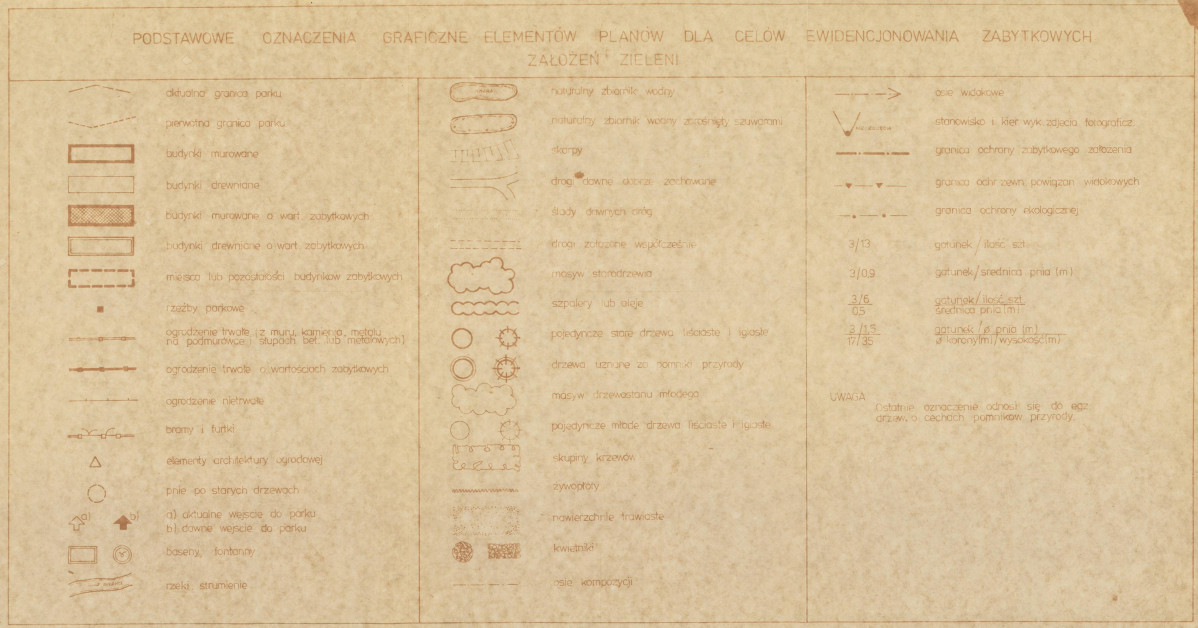 PODSTAWOWE OZNACZENIA GRAFICZNE ELEMENTÓW PLANÓW DLA CELÓW EWIDENCJONOWANIA ZABYTKOWYCH
ZAŁOŻEŃ ZIELENI
aktualna granica parku
pierwotna granica parku
budynki murowane
budynki drewniane
budynki murowane o wart. zabytkowych
budynki drewniane o wart. zabytkowych
miejsca lub pozostałości budynków zabytkowych
rzeźby parkowe
ogrodzenie trwałe (z muru, kamienia, metalu
na podmurówce i słupach bet. lub metalowych)
ogrodzenie trwałe o wartościach zabytkowych
ogrodzenie nietrwałe
bramy i furtki
elementy architektury ogrodowej
pnie po starych drzewach
a) b)
a) aktualne wejście do parku
b) dawne wejście do parku
baseny, fontanny
rzeki strumienie
naturalny zbiornik wodny
naturalny zbiornik wodny zarośnięty szuwarami
skarpy
drogi dawne dobrze zachowane
ślady dawnych dróg
drogi założone współcześnie
masyw starodrzewia
szpalery lub aleje
pojedyncze stare drzewa liściaste i iglaste
drzewa uznane za pomniki przyrody
masyw drzewostanu młodego
pojedyncze młode drzewa liściaste i iglaste
skupiny krzewów
żywopłoty
nawierzchnie trawiaste
kwietniki
osie kompozycji
osie widokowe
stanowisko i kier. wyk. zdjęcia fotograficz.
granica ochrony zabytkowego założenia
granica ochr. zewn. powiązań widokowych
granica ochrony ekologicznej
3/13 gatunek / ilość szt.
3/0,9 gatunek/średnica pnia (m)
3/6 gatunek/ilość szt.
0,5 średnica pnia (m)
2/1,5 gatunek / ø pnia (m)
17/35 ø korony(m)/wysokość(m)
UWAGA
Ostatnie oznaczenie odnosi się do egz.
drzew o cechach pomników przyrody.